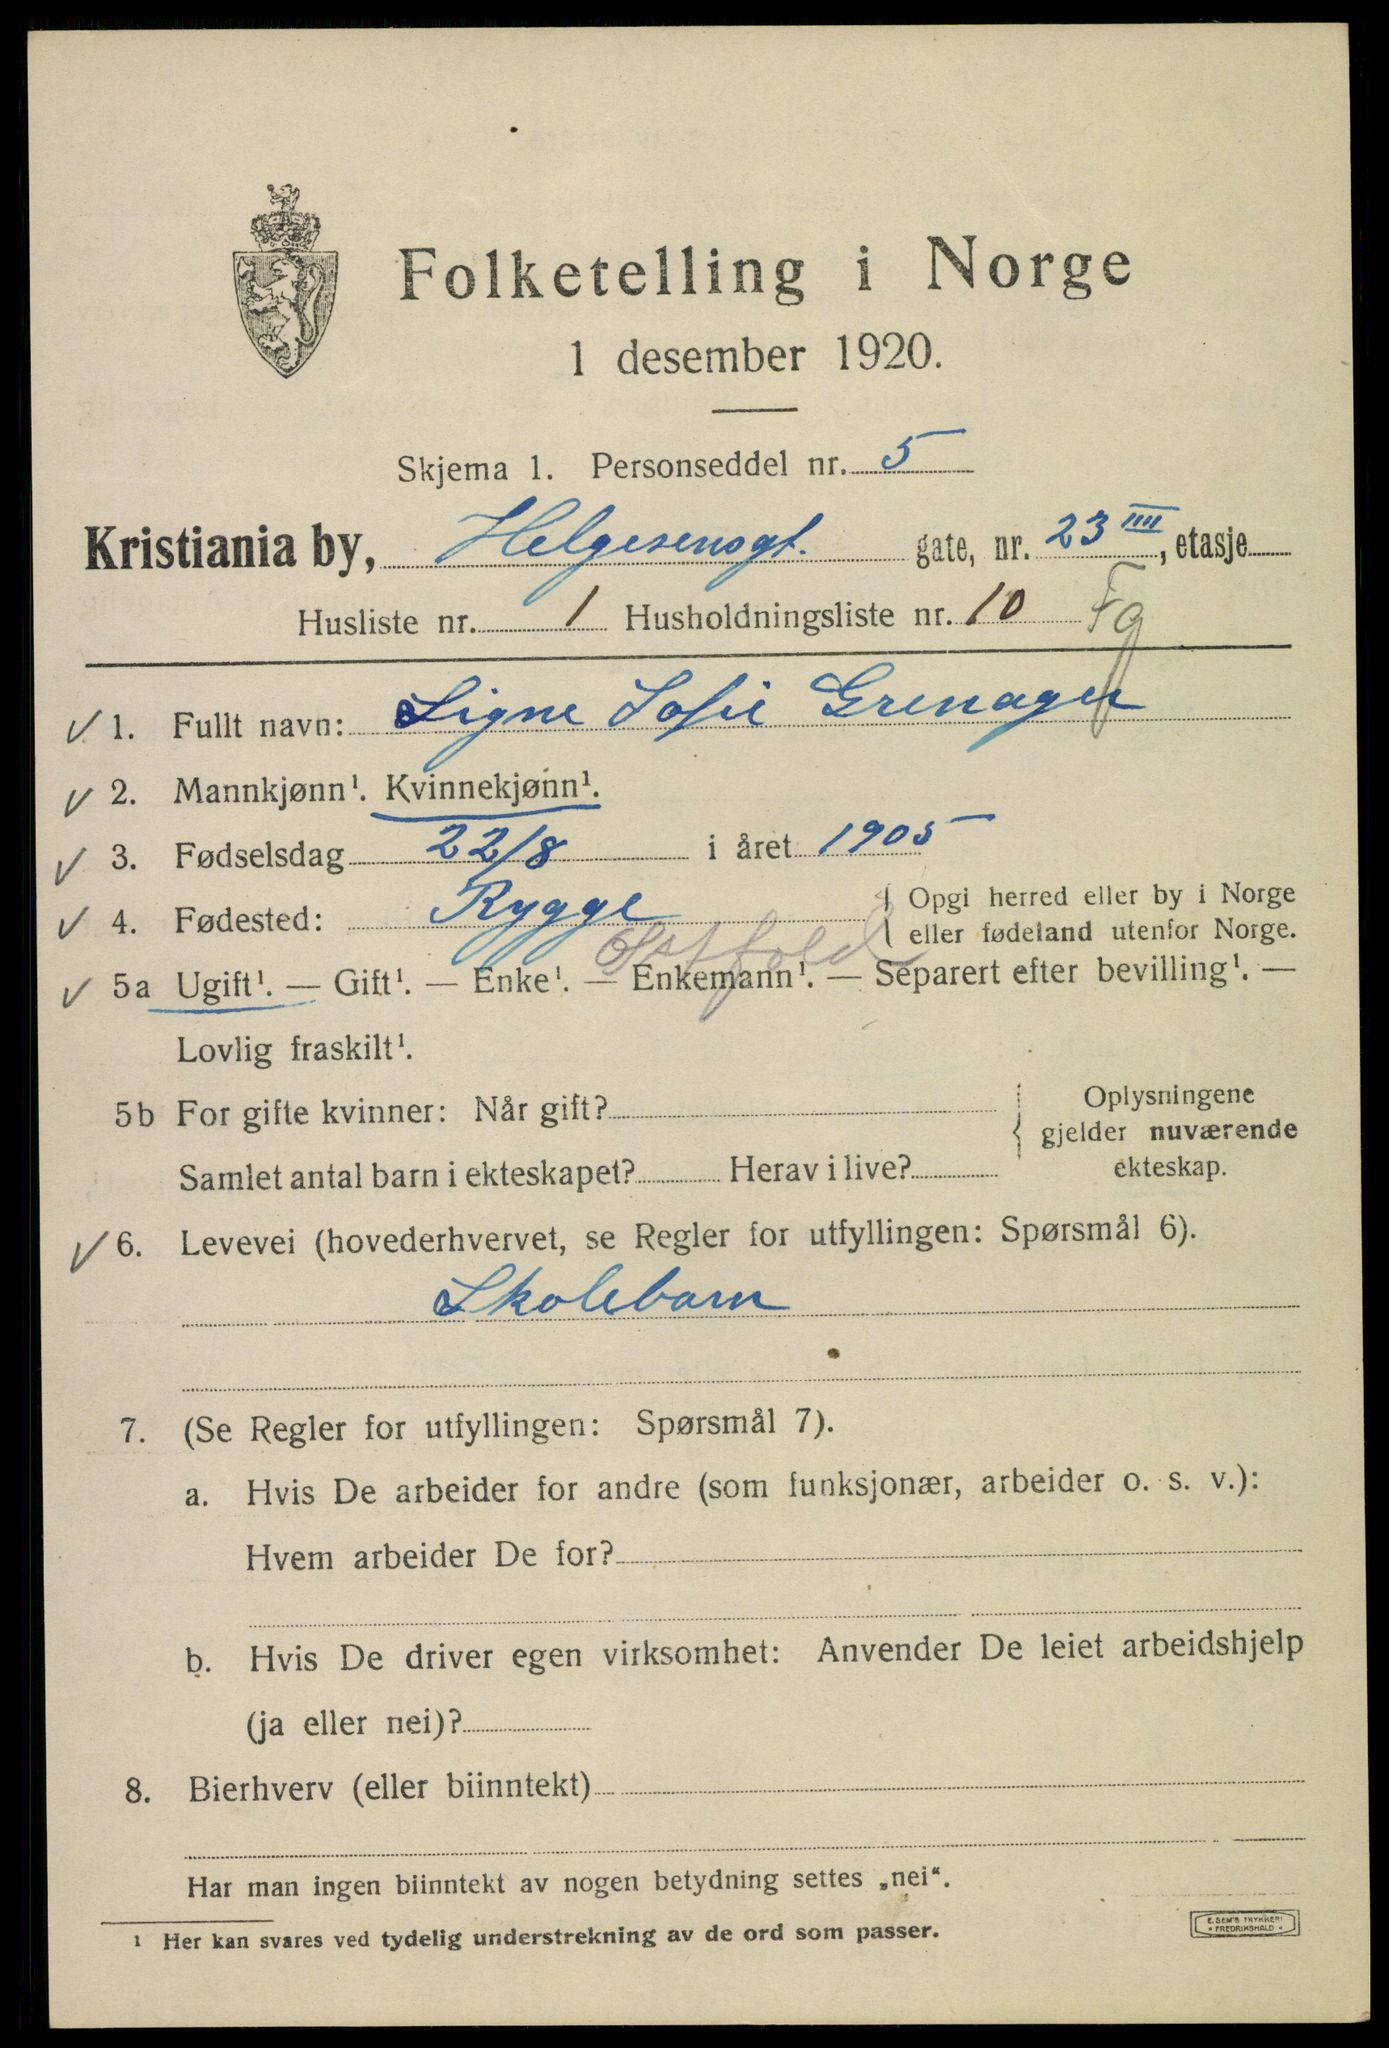 Folketelling i Norge
1 desember 1920.
Skjema 1. Personseddel nr. 5
Kristiania by, Helgesensgt. gate, nr. 23 IIII, etasje
Husliste nr. 1 Husholdningsliste nr. 10 Fg
✓ 1. Fullt navn: Signe Sofie Grenager
✓ 2. Mannkjønn¹. Kvinnekjønn¹.
✓ 3. Fødselsdag 22/8 i året 1905
✓ 4. Fødested: Rygge { Opgi herred eller by i Norge
eller fødeland utenfor Norge.
Østfold
✓ 5a Ugift¹. — Gift¹. — Enke¹. — Enkemann¹. — Separert efter bevilling¹. —
Lovlig fraskilt¹.
5b For gifte kvinner: Når gift? { Oplysningene
gjelder nuværende
Samlet antal barn i ekteskapet? Herav i live? ekteskap.
✓ 6. Levevei (hovederhvervet, se Regler for utfyllingen: Spørsmål 6).
Skolebarn
7. (Se Regler for utfyllingen: Spørsmål 7).
a. Hvis De arbeider for andre (som funksjonær, arbeider o. s. v.):
Hvem arbeider De for?
b. Hvis De driver egen virksomhet: Anvender De leiet arbeidshjelp
(ja eller nei)?
8. Bierhverv (eller biinntekt)
Har man ingen biinntekt av nogen betydning settes „nei“.
¹ Her kan svares ved tydelig understrekning av de ord som passer.
E. SEM'S TRYKKERI
FREDRIKSHALD